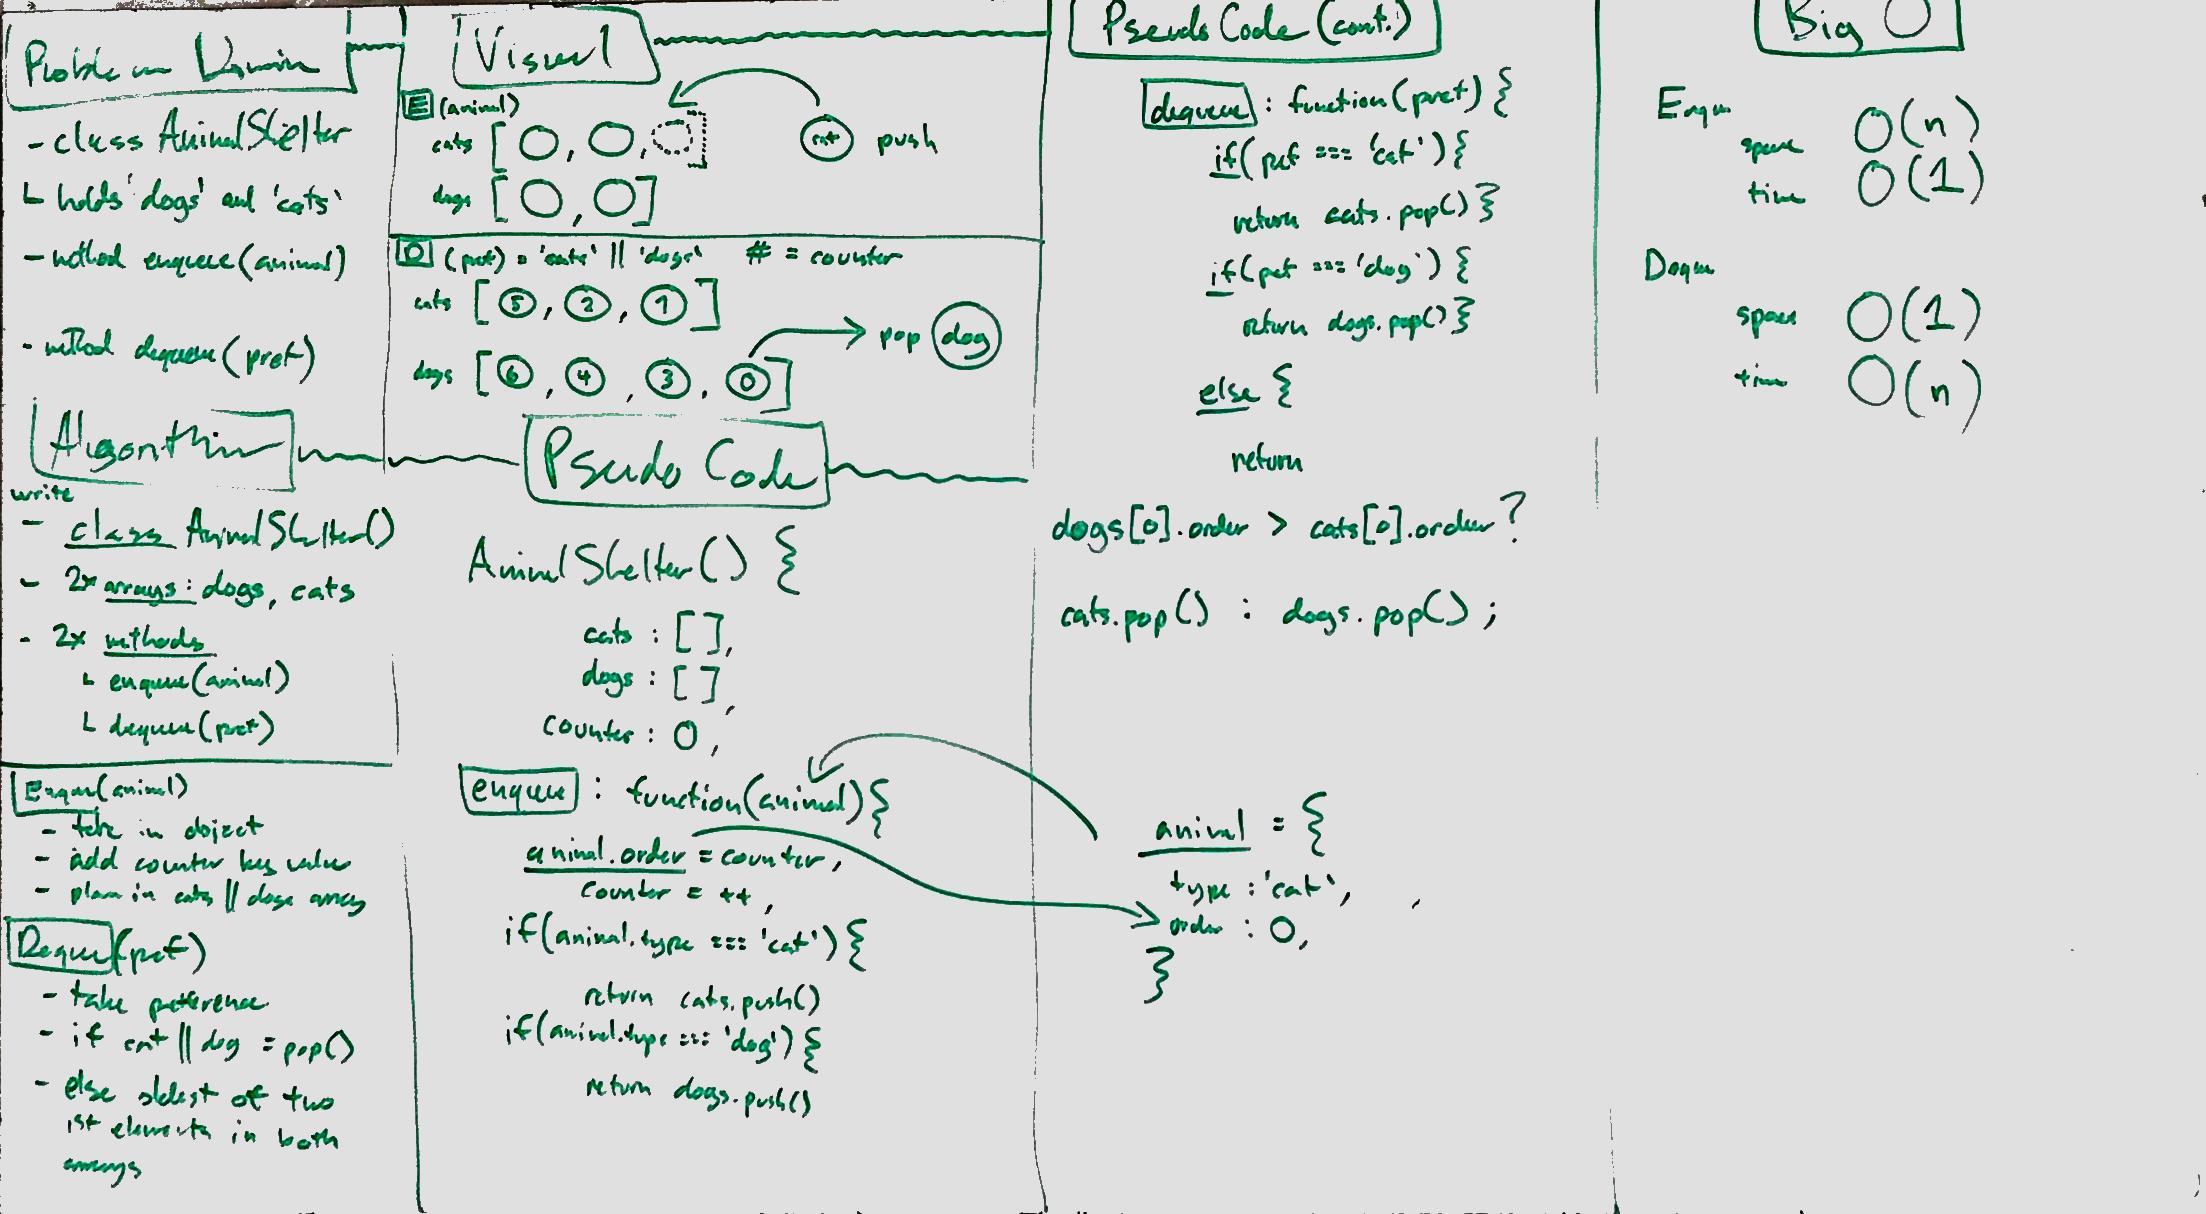 Problem Domain
- class AnimalShelter
└ holds 'dogs' and 'cats'
- method enqueue(animal)
- method dequeue(pref)
Algorithm
write
- class AnimalShelter()
- 2x arrays: dogs, cats
- 2x methods
└ enqueue(animal)
└ dequeue(pref)
Enque(animal)
- take in object
- add counter key value
- place in cats || dogs array
Deque(pref)
- take preference
- if cat || dog = pop()
- else oldest of two
1st elements in both
arrays
Visual
E (animal)
cats [ O, O, ] cat push
dogs [ O, O ]
D (pref) = 'cats' || 'dogs' # = counter
cats [ 5, 2, 1 ]
pop dog
dogs [ 6, 4, 3, 0 ]
Pseudo Code
AnimalShelter() {
cats : [ ],
dogs : [ ],
counter : 0,
enqueue : function(animal) {
animal.order = counter,
counter = ++,
if(animal.type === 'cat') {
return cats.push()
if(animal.type === 'dog') {
return dogs.push()
Pseudo Code (cont.)
dequeue : function(pref) {
if(pref === 'cat') {
return cats.pop() }
if(pet === 'dog') {
return dogs.pop() }
else {
return
dogs[0].order > cats[0].order ?
cats.pop() : dogs.pop() ;
animal = {
type : 'cat',
order : 0,
}
Big O
Enque
space O(n)
time O(1)
Deque
space O(1)
time O(n)